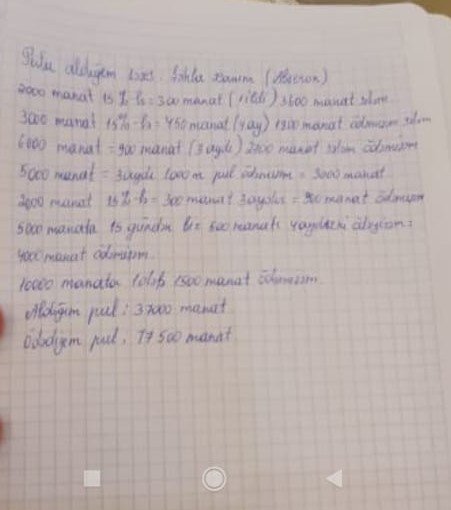 Pulu aldığım şəxs: Şöhlə xanım (Abşeron)
2000 manat 15% lə = 300 manat (1 ildi) 3600 manat
3000 manat 15% -lə = 450 manat (4 ay) 1800 manat ödəmişəm
6000 manat = 900 manat (3 aydı) 2700 manat ödəmişəm
5000 manat = 3 aydı 1000 m pul ödəmişəm = 3000 manat
2000 manat 15% -lə = 300 manat 3 aydır = 900 manat ödəmişəm
5000 manata 15 gündən bir 500 manatı 4 aydır ödəyirəm =
4000 manat ödəmişəm.
10000 manata 1500 manat ödəmişəm.
Aldığım pul: 37000 manat
Ödədiyim pul: 17 500 manat